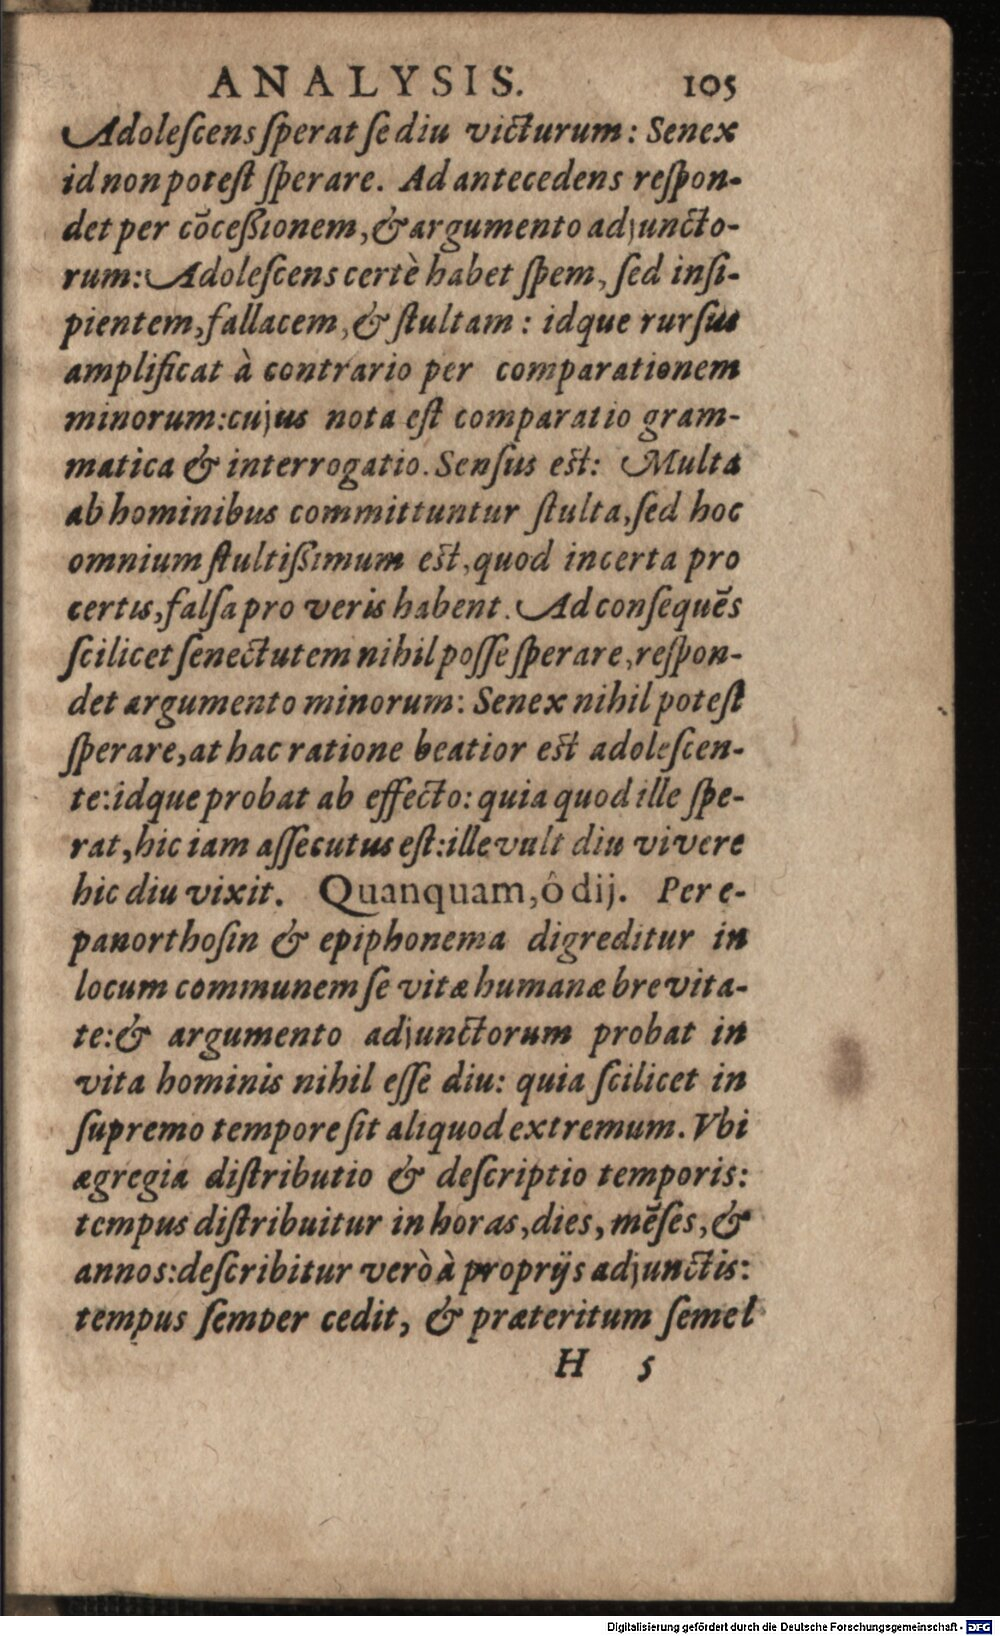 ANALYSIS. 105
Adoleſcens ſperat ſe diu victurum: Senex
id non poteſt ſperare. Ad antecedens reſpon-
det per cōceßionem, & argumento adjuncto-
rum: Adoleſcens certè habet ſpem, ſed inſi-
pientem, fallacem, & ſtultam: idque rurſus
amplificat à contrario per comparationem
minorum: cujus nota eſt comparatio gram-
matica & interrogatio. Senſus eſt: Multa
ab hominibus committuntur ſtulta, ſed hoc
omnium ſtultißimum eſt, quod incerta pro
certis, falſa pro veris habent. Ad conſequēs
ſcilicet ſenectutem nihil poſſe ſperare, reſpon-
det argumento minorum: Senex nihil poteſt
ſperare, at hac ratione beatior eſt adoleſcen-
te: idque probat ab effecto: quia quod ille ſpe-
rat, hic iam aſſecutus eſt: ille vult diu vivere
hic diu vixit. Quanquam, ô dij. Per e-
panorthoſin & epiphonema digreditur in
locum communem ſe vitæ humanæ brevita-
te: & argumento adjunctorum probat in
vita hominis nihil eſſe diu: quia ſcilicet in
ſupremo tempore ſit aliquod extremum. Vbi
ægregia diſtributio & deſcriptio temporis:
tempus diſtribuitur in horas, dies, mēſes, &
annos: deſcribitur verò à proprijs adjunctis:
tempus ſemper cedit, & præteritum ſemel
H 5
Digitalisierung gefördert durch die Deutsche Forschungsgemeinschaft - DFG